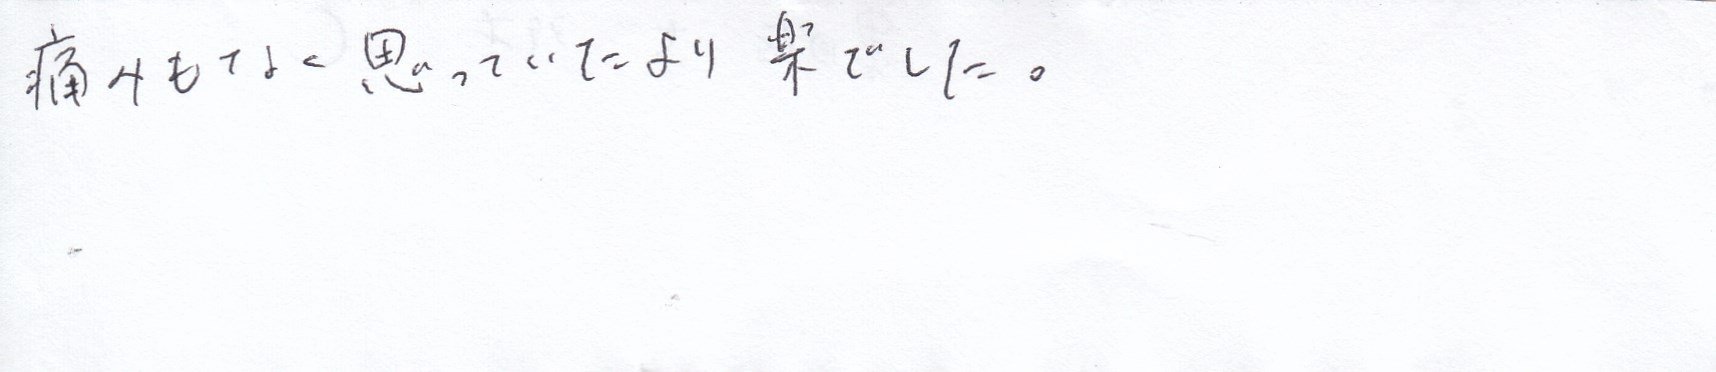 痛みもなく思っていたより楽でした。